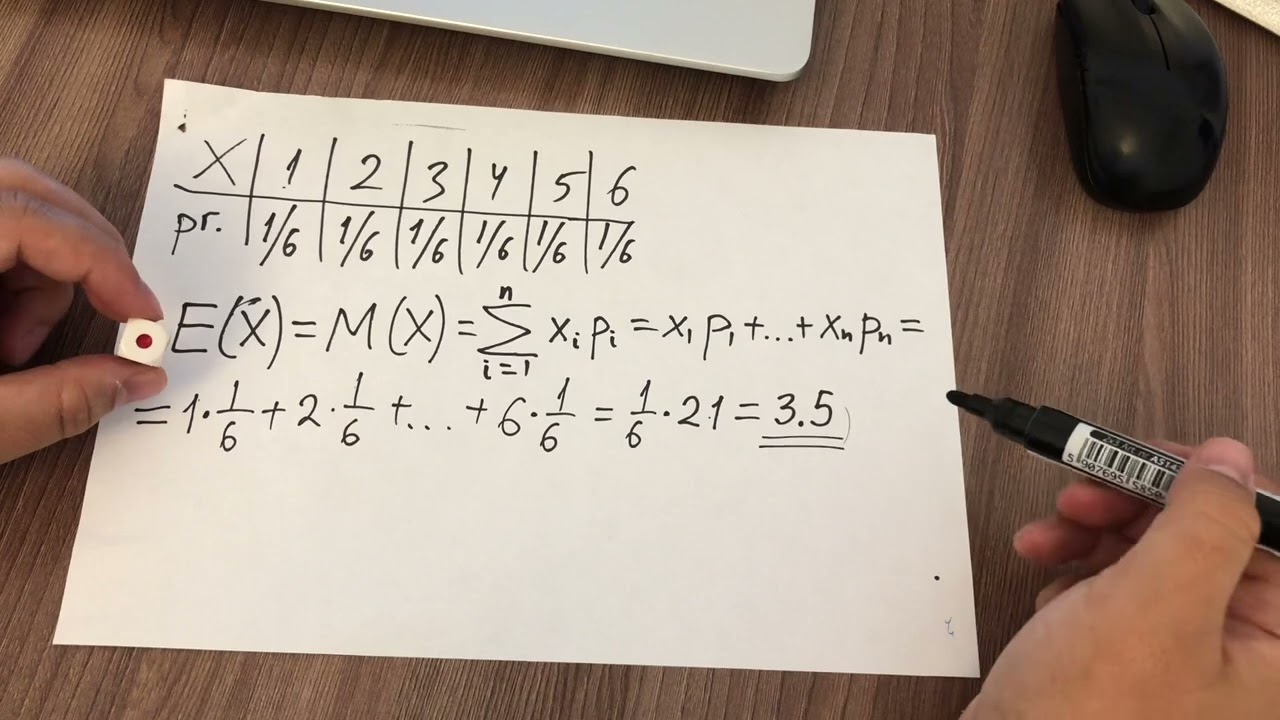 X | 1 | 2 | 3 | 4 | 5 | 6
pr. | 1/6 | 1/6 | 1/6 | 1/6 | 1/6 | 1/6
E(X) = M(X) = ∑ⁿᵢ₌₁ xᵢ pᵢ = x₁ p₁ + ... + xₙ pₙ =
= 1 · 1/6 + 2 · 1/6 + ... + 6 · 1/6 = 1/6 · 21 = 3.5